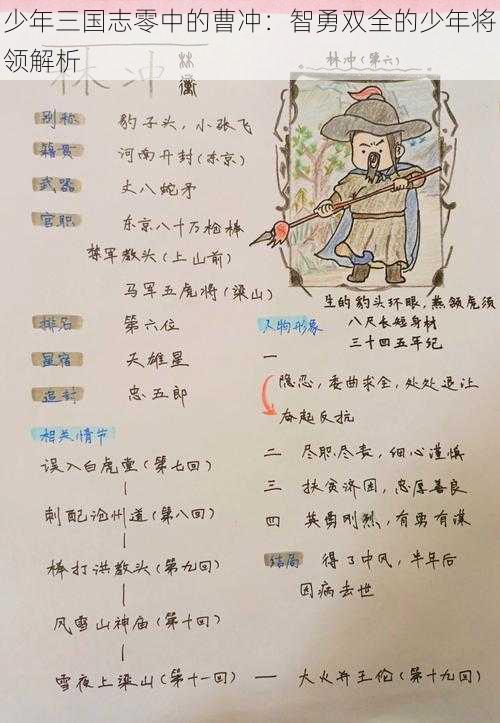 少年三国志零中的曹冲：智勇双全的少年将
领解析
林冲
林冲（第六）
别称 豹子头，小张飞
籍贯 河南开封（东京）
武器 丈八蛇矛
官职 东京八十万枪棒
禁军教头（上山前）
马军五虎将（梁山）
排名 第六位
星宿 天雄星
追封 忠五郎
相关情节
误入白虎堂（第七回）
刺配沧州道（第八回）
棒打洪教头（第九回）
风雪山神庙（第十回）
雪夜上梁山（第十一回） — 大火并王伦（第十九回）
生的豹头环眼，燕颔虎须
八尺长短身材
三十四五年纪
人物形象
一
隐忍，委曲求全，处处退让
奋起反抗
二 尽职尽责，细心谨慎
三 扶贫济困，忠厚善良
四 英勇刚烈，有勇有谋
结局 得了中风，半年后
因病去世